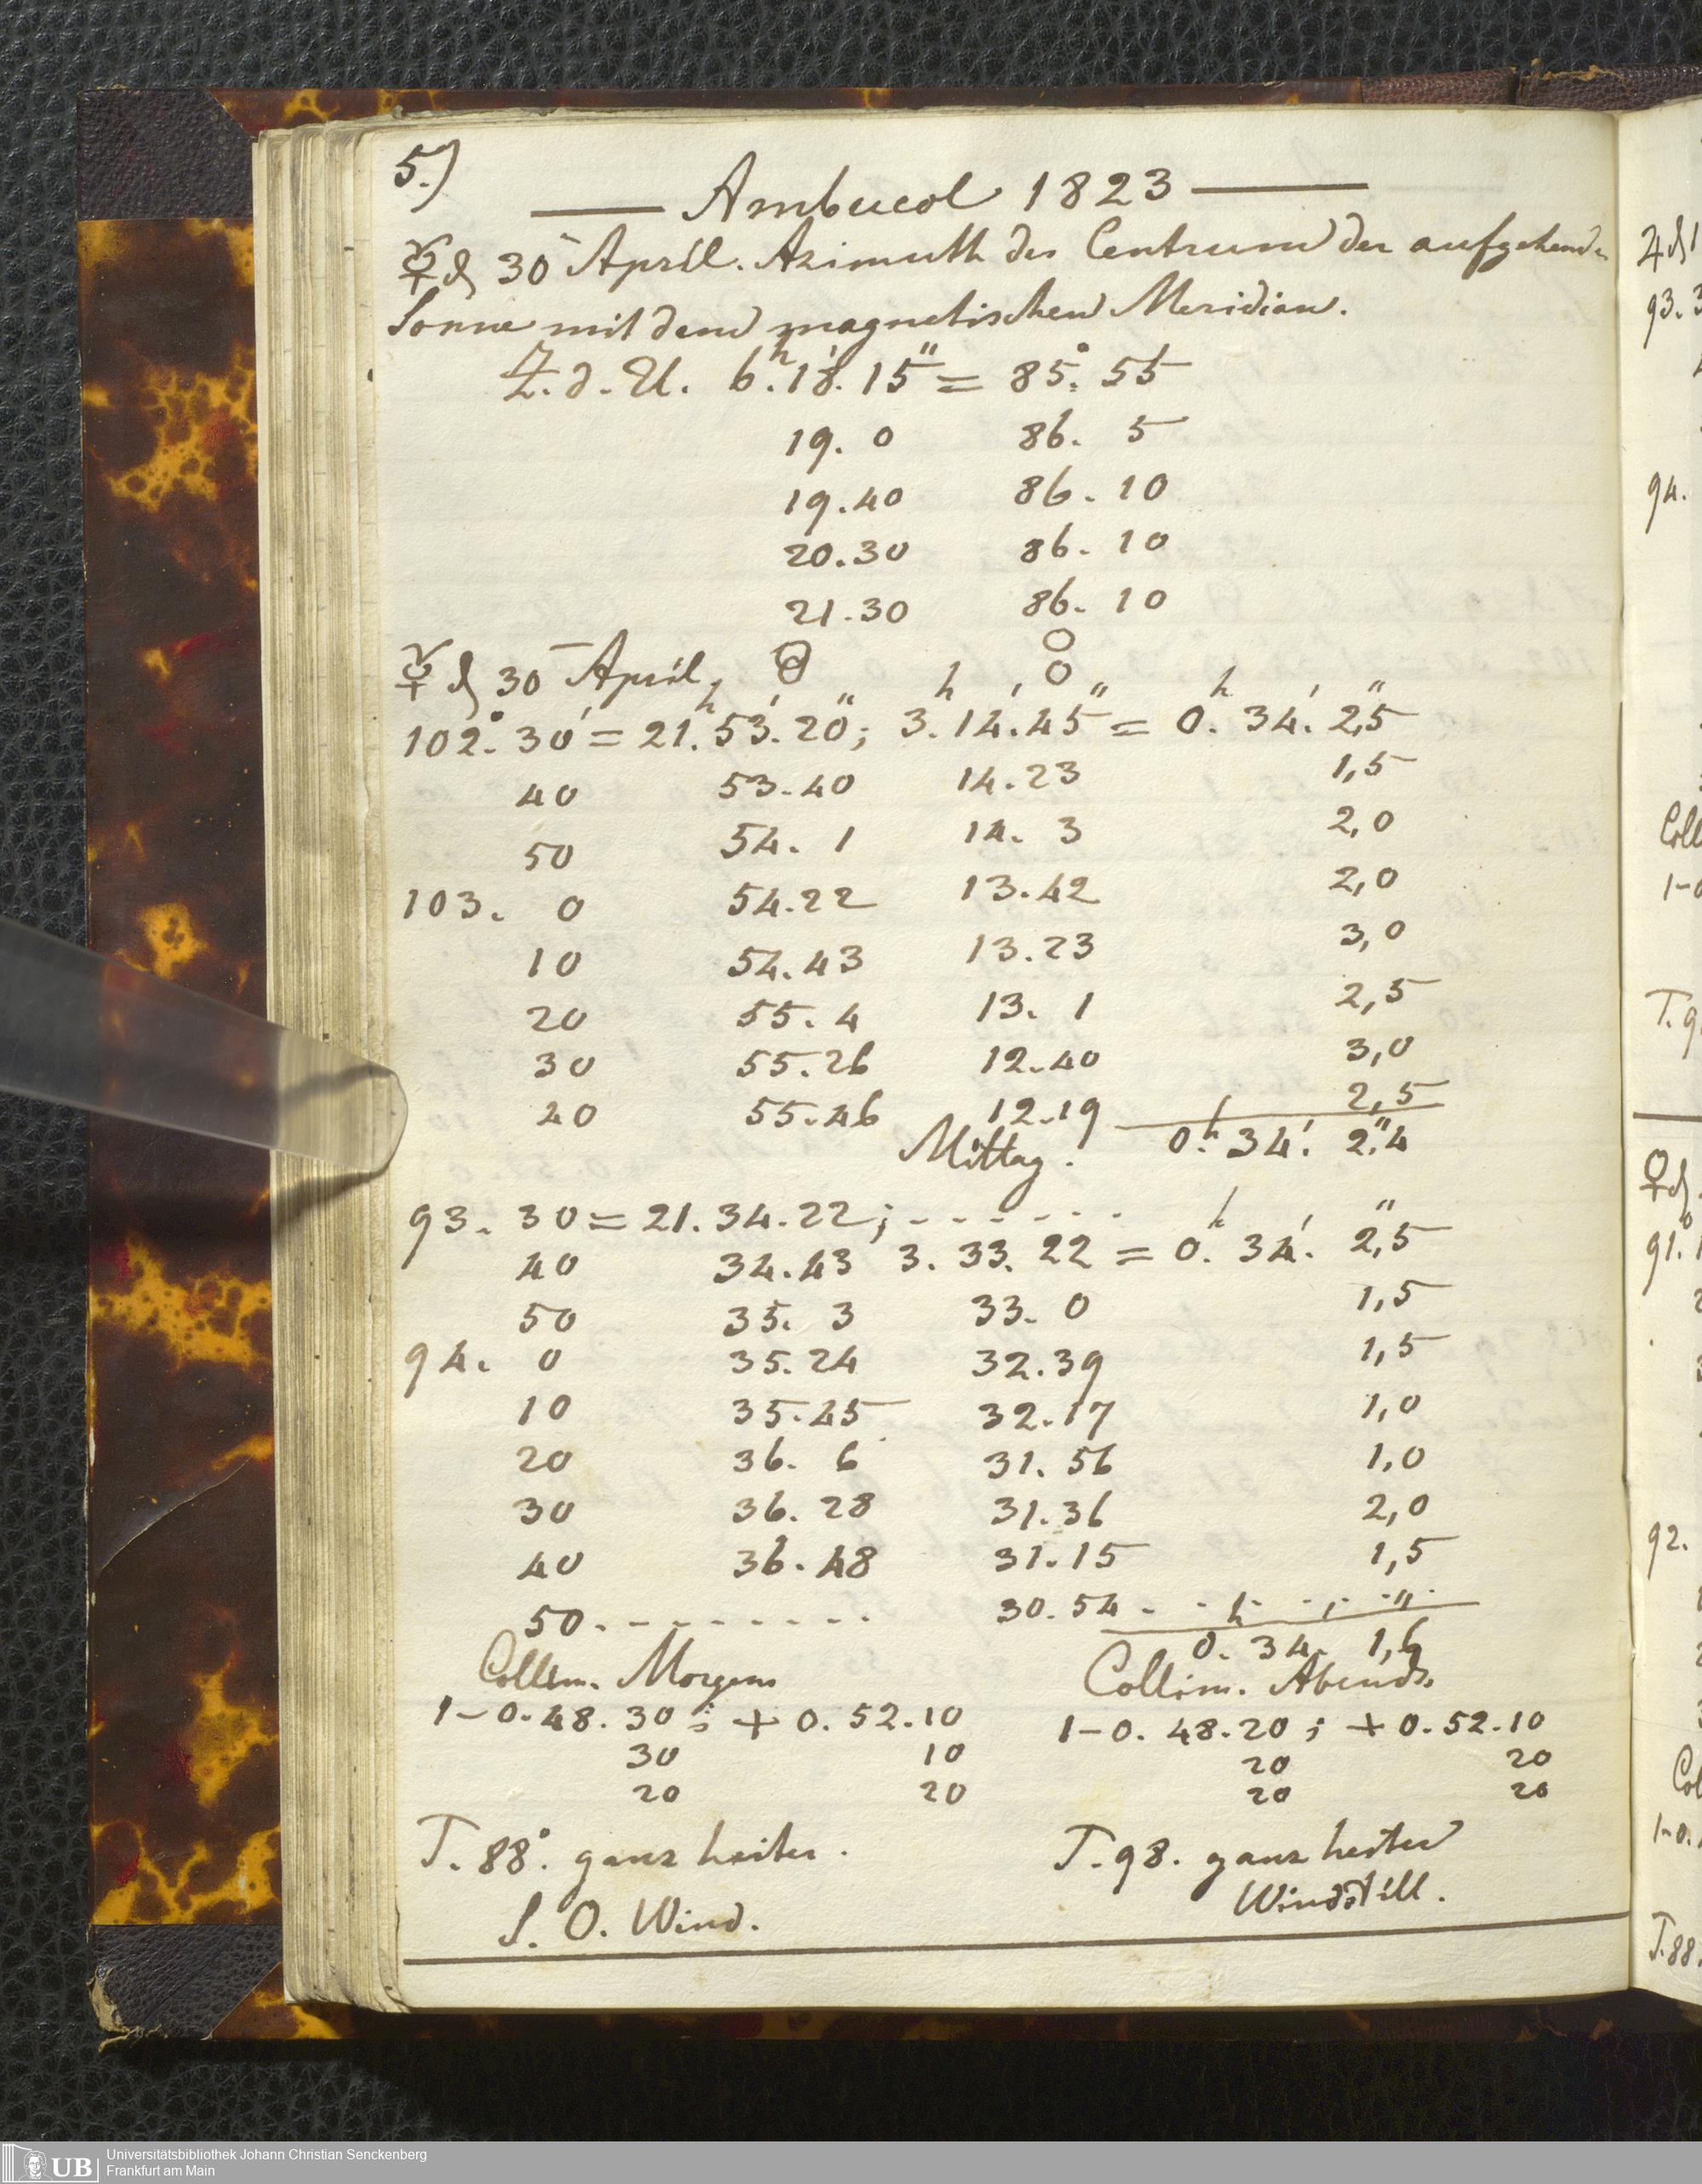 5.)
Ambucol 1823
☿ d 30 April. Azimuth des Centrum der aufgehende
Sonne mit dem magnetischen Meridian.
Z. d. U. 6.h 18.' 15" = 85.° 55
19. 0 86. 5
19.40 86. 10
20.30 86. 10
21.30 86. 10
☿ d 30 April,
102.° 30' = 21.h 53.' 20"; 3.h 14.' 45" = 0.h 34.' 2,"5
40 53.40 14.23 1,5
50 54. 1 14. 3 2,0
103. 0 54.22 13.42 2,0
10 54.43 13.23 3,0
20 55. 4 13. 1 2,5
30 55.26 12.40 3,0
40 55.46 12.19 2,5
Mittag. 0.h 34.' 2."4
93. 30 = 21. 34. 22; - - - - - -
40 34.43 3. 33. 22 = 0.h 34.' 2,"5
50 35. 3 33. 0 1,5
94. 0 35.24 32.39 1,5
10 35.45 32.17 1,0
20 36. 6 31. 56 1,0
30 36. 28 31.36 2,0
40 36. 48 31.15 1,5
50. - - - - - - - - 30.54 - - - - - -
0.h 34.' 1,"6
Collim. Morgens Collim. Abends.
1-0.48.30; + 0.52.10 1-0.48.20; + 0.52.10
30 10 20 20
20 20 20 20
T. 88°. ganz heiter. T. 98. ganz heiter
S. O. Wind. Windstill.
2
93. 3
94.
Coll
1-0
T. 9
♀ d
91. 1
92.
Col
1-0.
T. 88.
UB Universitätsbibliothek Johann Christian Senckenberg
Frankfurt am Main